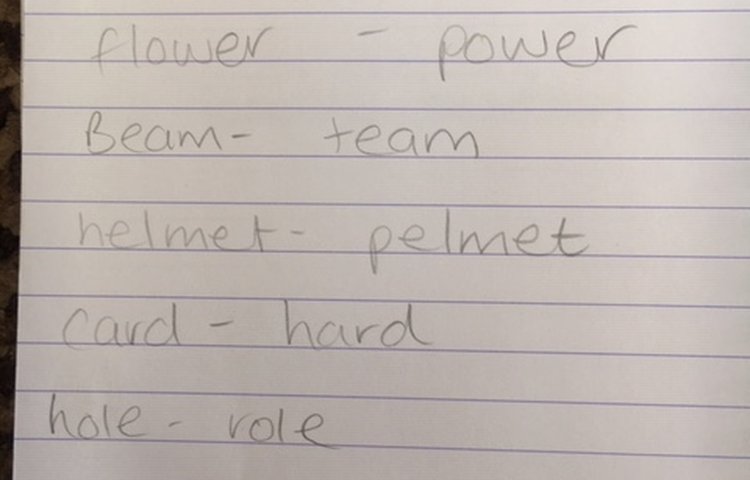 flower - power
Beam- team
helmet- pelmet
card - hard
hole - role